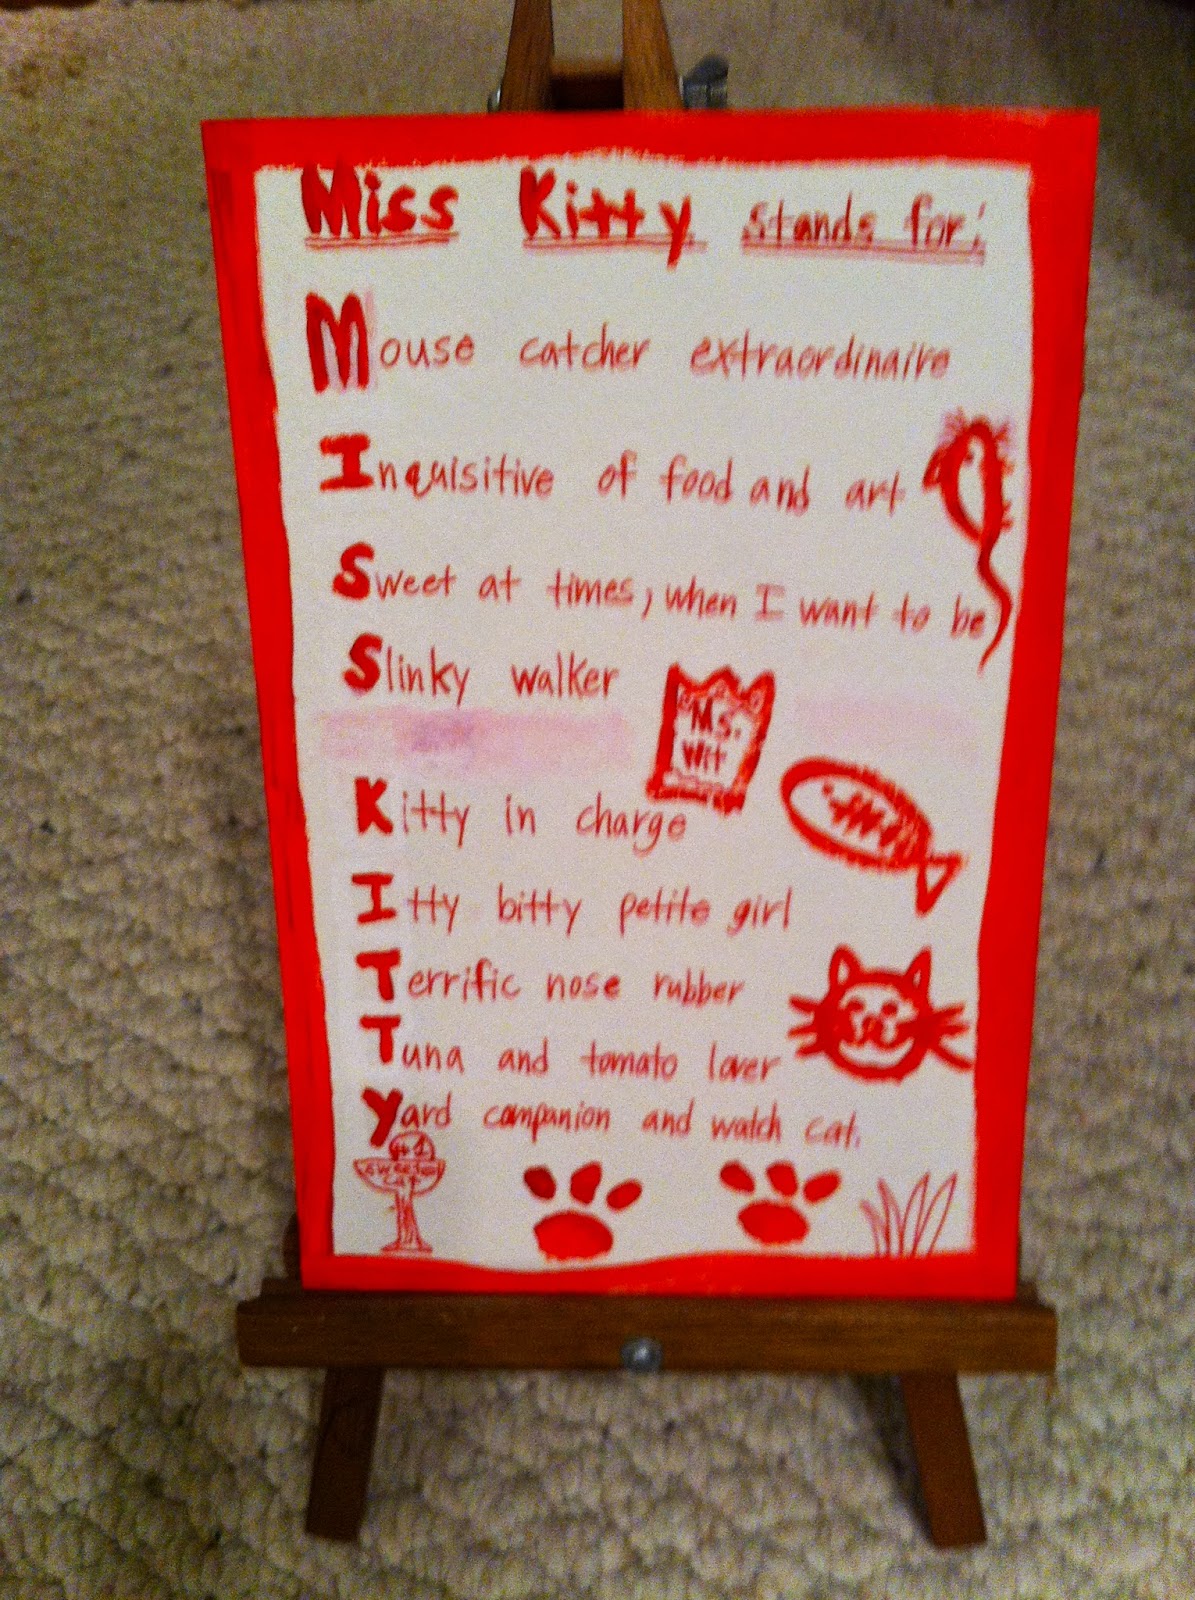 Miss Kitty stands for:
Mouse catcher extraordinaire
Inquisitive of food and art
Sweet at times, when I want to be
Slinky walker
Ms.
Wit
Kitty in charge
Itty bitty petite girl
Terrific nose rubber
Tuna and tomato lover
Yard companion and watch cat.
#1
Cat